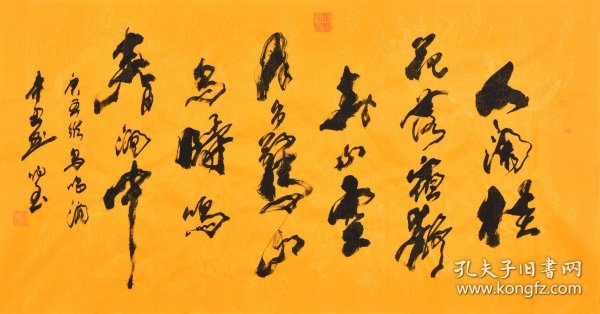 人闲桂
花落夜静
春山空
月出驚山
鸟時鸣
春涧中
鸟鸣涧
孔夫子旧書网
www.kongfz.com